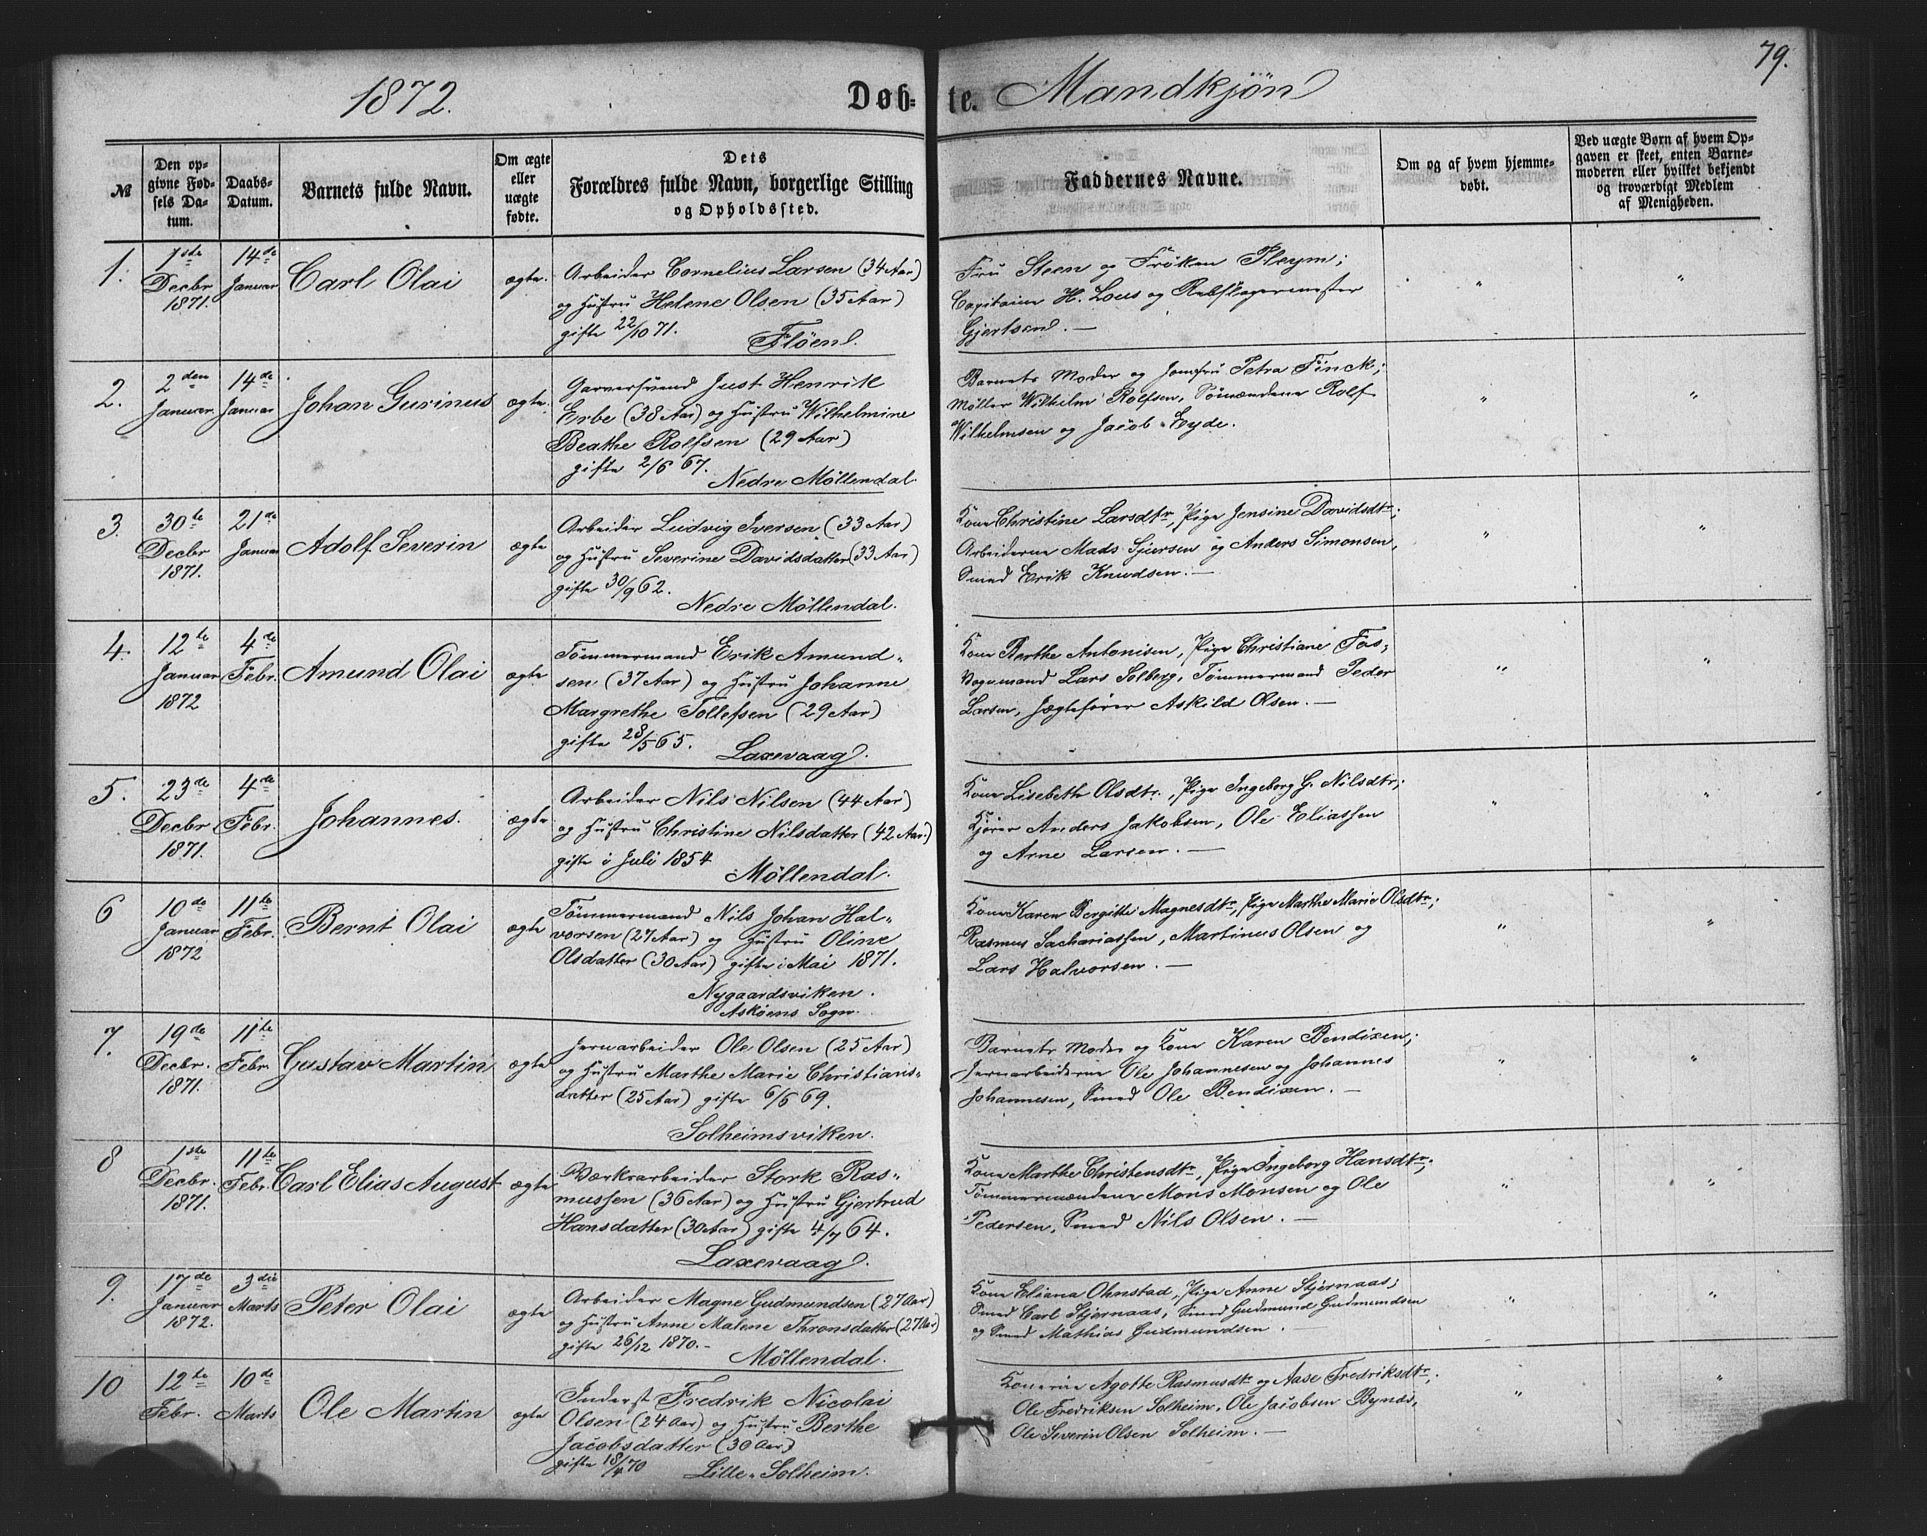 79.
1872. Døbte. Mandkjøn
№
Den opgivne Fødsels Datum.
Daabs-Datum.
Barnets fulde Navn.
Om ægte eller uægte fødte.
Dets Forældres fulde Navn, borgerlige Stilling og Opholdssted.
Faddernes Navne.
Om og af hvem hjemmedøbt.
Ved uægte Børn af hvem Opgaven er skeet, enten Barnemoderen eller hvilket bekjendt og troværdigt Medlem af Menigheden.
1. 1ste Decbr 1871. 14de Januar Carl Olai ægte.
Arbeider Cornelius Larsen (34 Aar)
og Hustru Helene Olsen (35 Aar)
gifte 22/10 71. Fløen.
Fru Steen og Frøken Pleym;
Capitaine H. Lous og Rebslagermester
Gjertsen. —
" "
2. 2den Januar 14de Januar Johan Gurinus ægte.
Garversvend Just Henrik
Erbe (38 Aar) og Hustru Wilhelmine
Beathe Rolfsen (29 Aar)
gifte 2/6 67.
Nedre Møllendal.
Barnets Moder og Jomfru Petra Finck;
Møller Wilhelm Rolfsen, Sømændene Rolf
Wilhelmsen og Jacob Eyde.
" "
3. 30te Decbr 1871. 21de Januar Adolf Severin ægte
Arbeider Ludvig Iversen (33 Aar)
og Hustru Severine Davidsdatter (33 Aar)
gifte 30/9 62.
Nedre Møllendal.
Kone Christine Larsdtr, Pige Jensine Davidsdtr;
Arbeiderne Mads Sjursen og Anders Simonsen,
Smed Erik Knudsen. —
" "
4. 12te Januar 1872 4de Febr. Amund Olai ægte
Tømmermand Erik Amund-
sen (37 Aar) og Hustru Johanne
Margrethe Tollefsen (29 Aar)
gifte 28/5 65. Laxevaag.
Kone Berthe Antonisen, Pige Christiane Fos;
Vognmand Lars Solberg, Tømmermand Peder
Larsen, Jægtefører Askild Olsen. —
" "
5. 23de Decbr 1871. 4de Febr. Johannes. ægte
Arbeider Nils Nilsen (44 Aar)
og Hustru Christine Nilsdatter (42 Aar.)
gifte i Juli 1854
Møllendal.
Kone Lisebeth Olsdtr., Pige Ingeborg G. Nilsdtr;
Kjører Anders Jakobsen, Ole Eliassen
og Arne Larsen. —
" "
6 10de Januar 1872 11te Febr. Bernt Olai ægte
Tømmermand Nils Johan Hal-
vorsen (27 Aar) og Hustru Oline
Olsdatter (30 Aar) gifte i Mai 1871.
Nygaardsviken.
Askøens Sogn.
Kone Karen Bergitte Magnesdtr, Pige Marthe Marie Olsdtr;
Rasmus Sachariassen, Martinus Olsen og
Lars Halvorsen. —
" "
7. 19de Decbr. 1871. 11te Febr. Gustav Martin ægte
Jernarbeider Ole Olsen (25 Aar)
og Hustru Marthe Marie Christians-
datter (25 Aar) gifte 6/6 69.
Solheimsviken.
Barnets Moder og Kone Karen Bendixen;
Jernarbeiderne Ole Johannesen og Johannes
Johannesen, Smed Ole Bendixen. —
" "
8 1ste Decbr. 1871. 11te Febr. Carl Elias August ægte
Værkrarbeider Stork Ras-
mussen (36 Aar) og Hustru Gjertrud
Hansdatter (30 Aar) gifte 4/7 64.
Laxevaag.
Kone Marthe Christensdtr, Pige Ingeborg Hansdtr;
Tømmermændene Mons Monsen og Ole
Pedersen, Smed Nils Olsen. —
" "
9. 17de Januar 1872. 3die Marts Peter Olai ægte
Arbeider Magne Gudmundsen (27 Aar)
og Hustru Anne Malene Thronsdatter (27 Aar)
gifte 26/12 1870. —
Møllendal.
Kone Eliana Ohnstad, Pige Anne Stjernaas;
Smed Carl Stjernaas, Smed Gudmund Gudmundsen
og Smed Mathias Gudmundsen.
" "
10 12te Febr. 10de Marts Ole Martin ægte
Inderst Fredrik Nicolai
Olsen (24 Aar) og Hustru Berthe
Jacobsdatter (30 Aar)
gifte 18/4 70
Lille-Solheim.
Konerne Agotte Rasmusdtr og Aase Fredriksdtr.
Ole Fredriksen Solheim, Ole Jacobsen Bynæs,
Ole Severin Olsen Solheim. —
" "